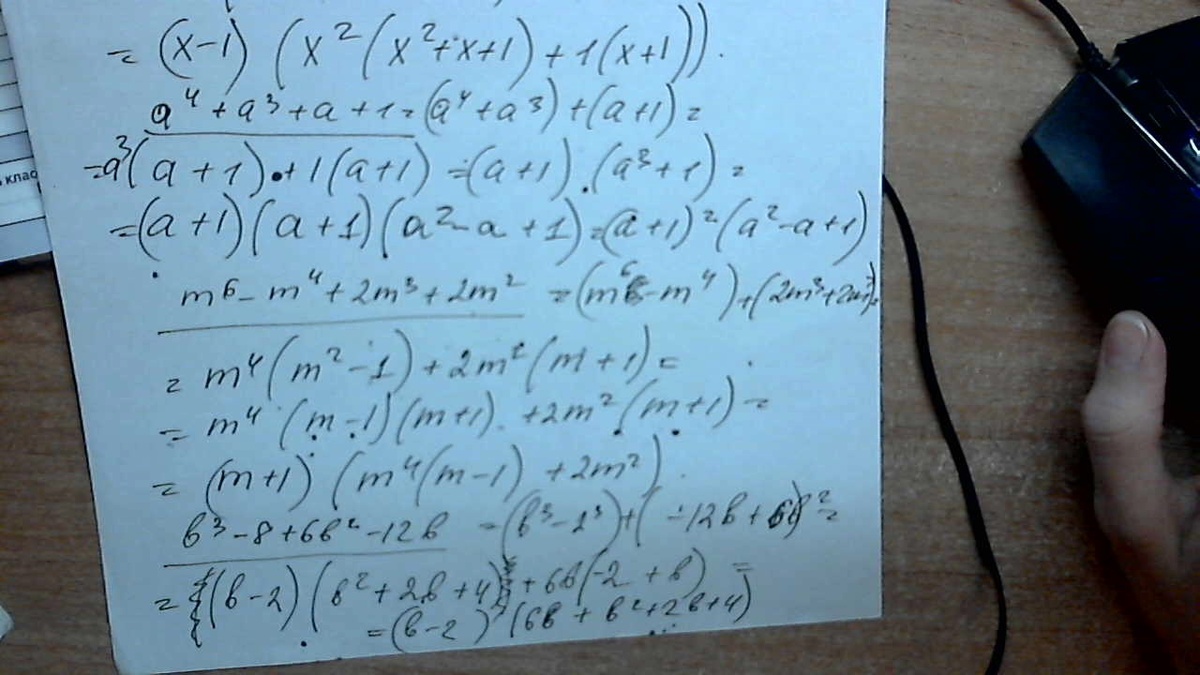 = (x-1) (x² (x²+x+1) + 1(x+1)).
a⁴ + a³ + a + 1 = (a⁴ + a³) + (a+1) =
= a³(a + 1) + 1(a+1) = (a+1) · (a³+1) =
= (a+1) (a+1) (a² - a + 1) = (a+1)² (a² - a + 1)
m⁶ - m⁴ + 2m³ + 2m² = (m⁶ - m⁴) + (2m³ + 2m²) =
= m⁴ (m² - 1) + 2m² (m + 1) =
= m⁴ (m - 1) (m+1) + 2m² (m+1) =
= (m+1) (m⁴(m-1) + 2m²).
в³ - 8 + 6в² - 12в = (в³ - 2³) + ( - 12в + 6в)² =
= (в-2) (в² + 2в + 4) + 6в(-2 + в) =
= (в-2) (6в + в² + 2в + 4)
клас